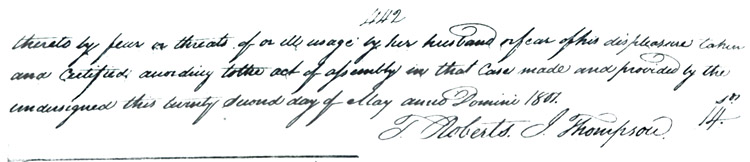 442
thereto by fear or threats of or ill usage by her husband or fear of his displeasure taken
and Certified; according to the act of assembly in that Case made and provided by the
undersigned this twenty Second day of May anno Domini 1801.
T. Roberts. J. Thompson. 14.